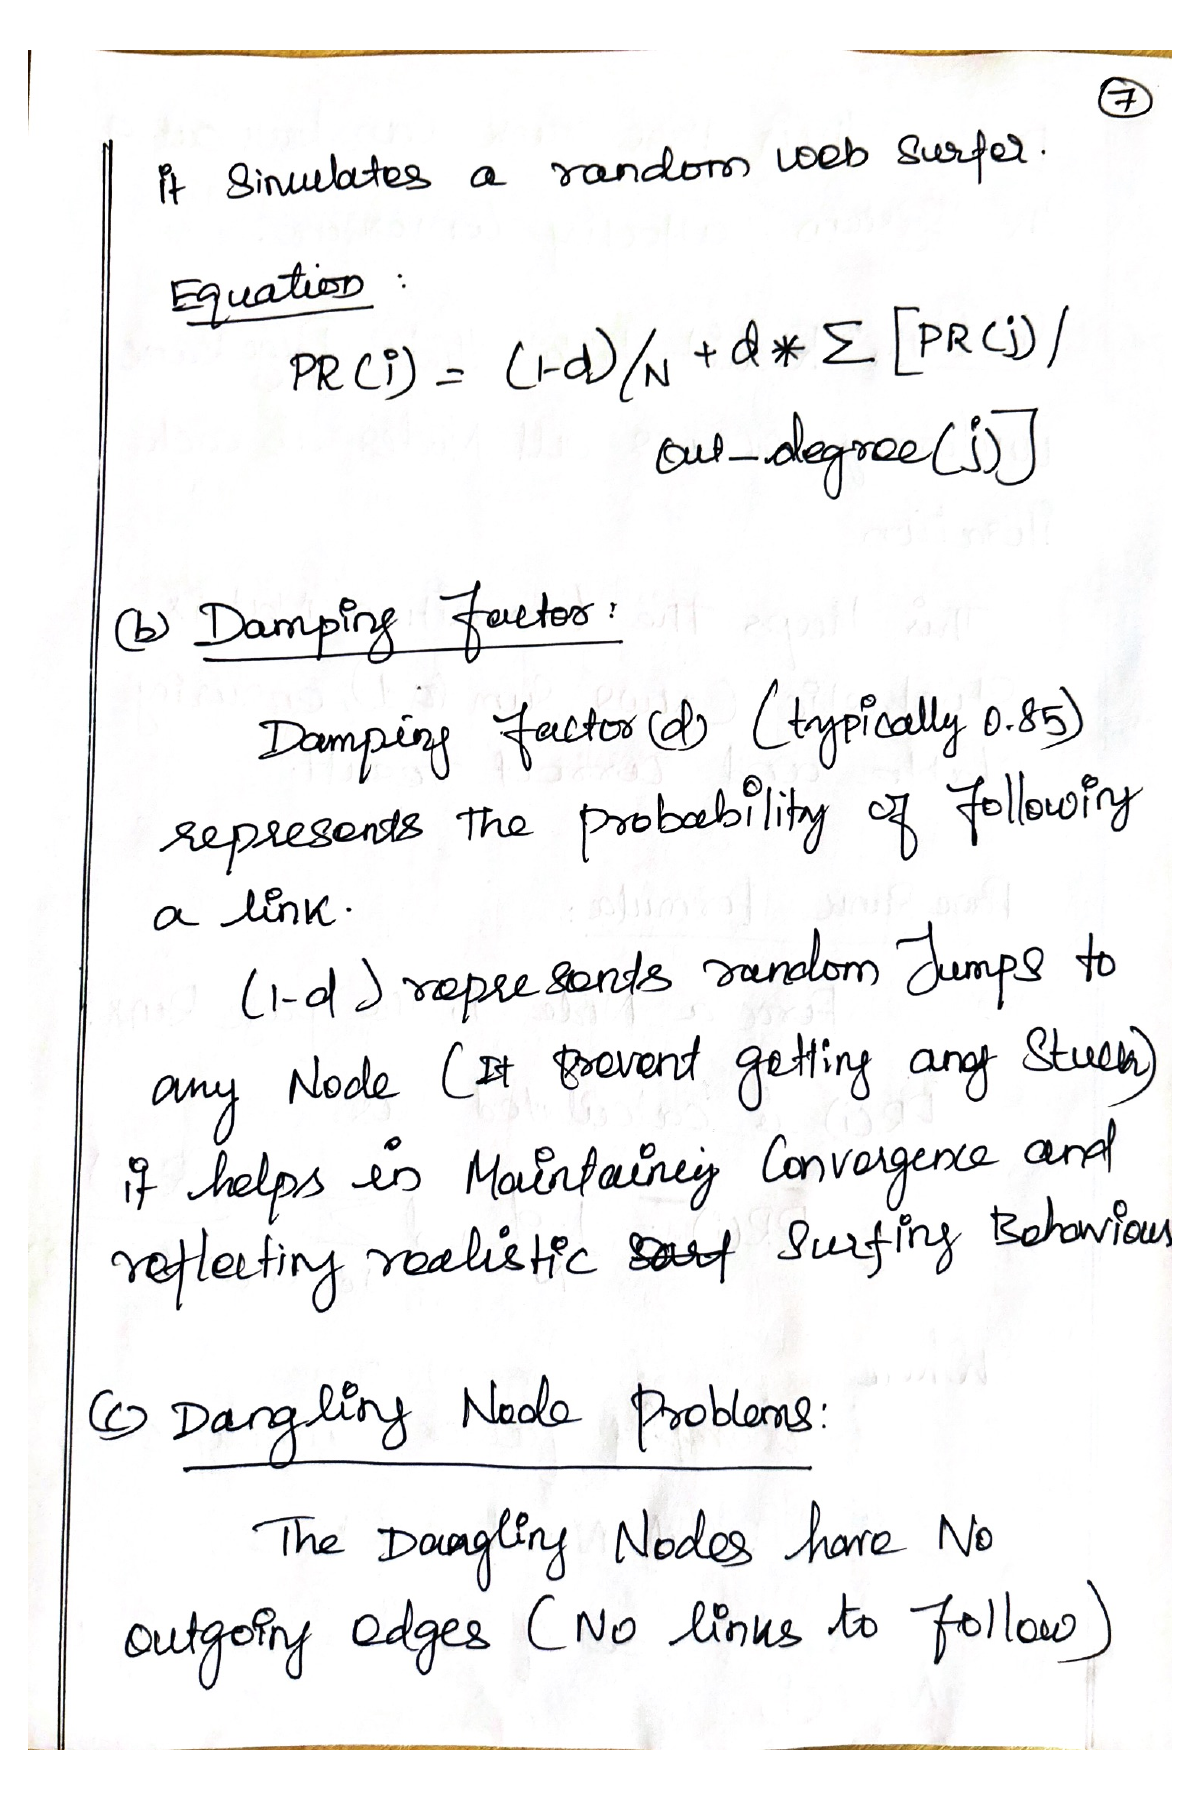 7
it Simulates a random web Surfer.
Equation :
PR(i) = (1-d)/N + d * Σ [PR(j)/
out-degree(j)]
(b) Damping factor:
Damping factor (d) (typically 0.85)
represents the probability of following
a link.
(1-d) represents random Jumps to
any Node (It prevent getting any Stuck)
it helps in Maintaining Convergence and
reflecting realistic Surfing Behaviour
(c) Dangling Node Problems:
The Dangling Nodes have No
outgoing edges (No links to follow)